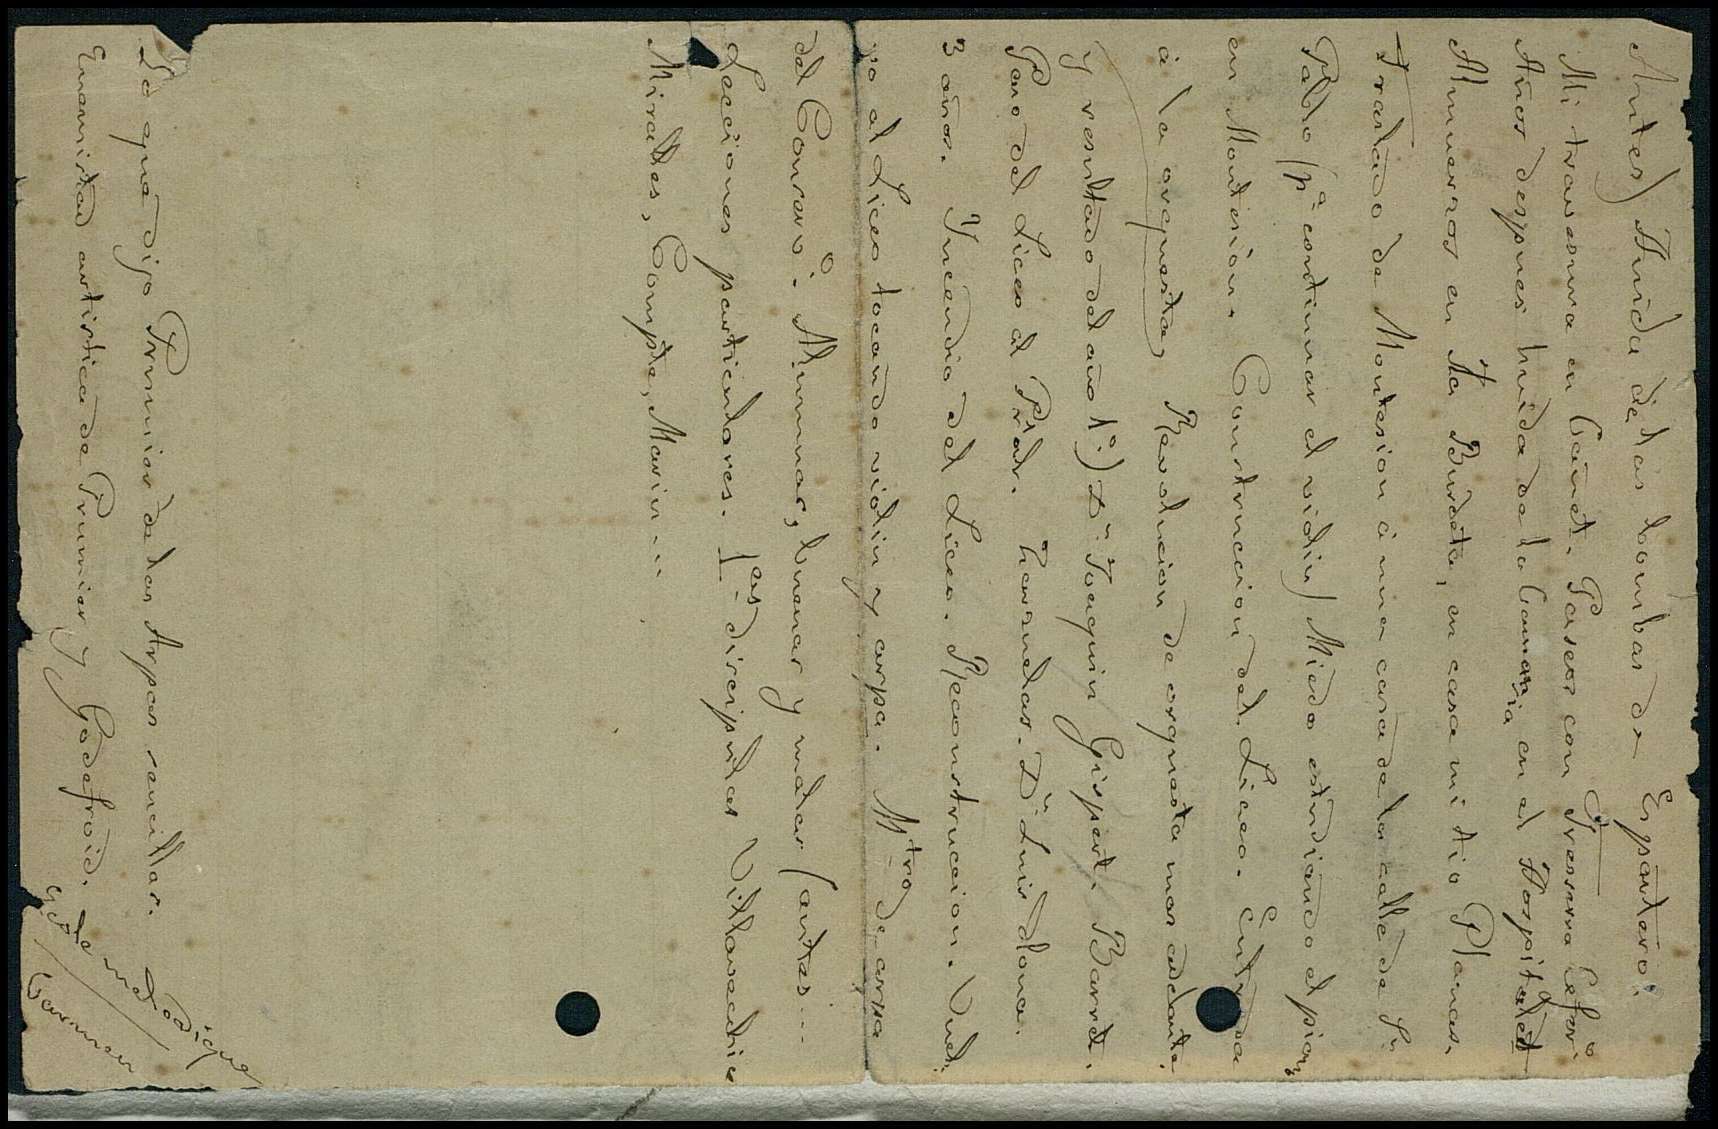 Antes) Huida de las bombas de Espartero.
Mi travesura en Canet. Paseos con Tresserra Ceferio
Años despues huida de la Comuna en el Hospitalet
Almuerzos en Bordeta, en casa mi tio Planas.
Traslado de Montesion á una casa de la calle de Sn
Pablo (pa continuar el violin) Miedo estudiando el piano
en Montesion. Construccion del Liceo. Entrada
á la orquesta, Revolucion de orquesta mas adelante.
y resultado del año 1o) Dn Joaquin Gispert. Barret.
Paso del Liceo al Pral. Zarzuelas. Dn Luis dona.
3 años. Incendio del Liceo. Reconstruccion. Vuel-
vo al Liceo tocando violin y arpa. Mtro de arpa
del Conservo. Alumnas, buenas y malas (antes...
Lecciones particulares. 1as discipulas Villavecchia
Miralles, Compte, Marin...
Lo que dijo Prumier de las Arpas sencillas.
Enemistad artistica de Prumier y Godefroid.